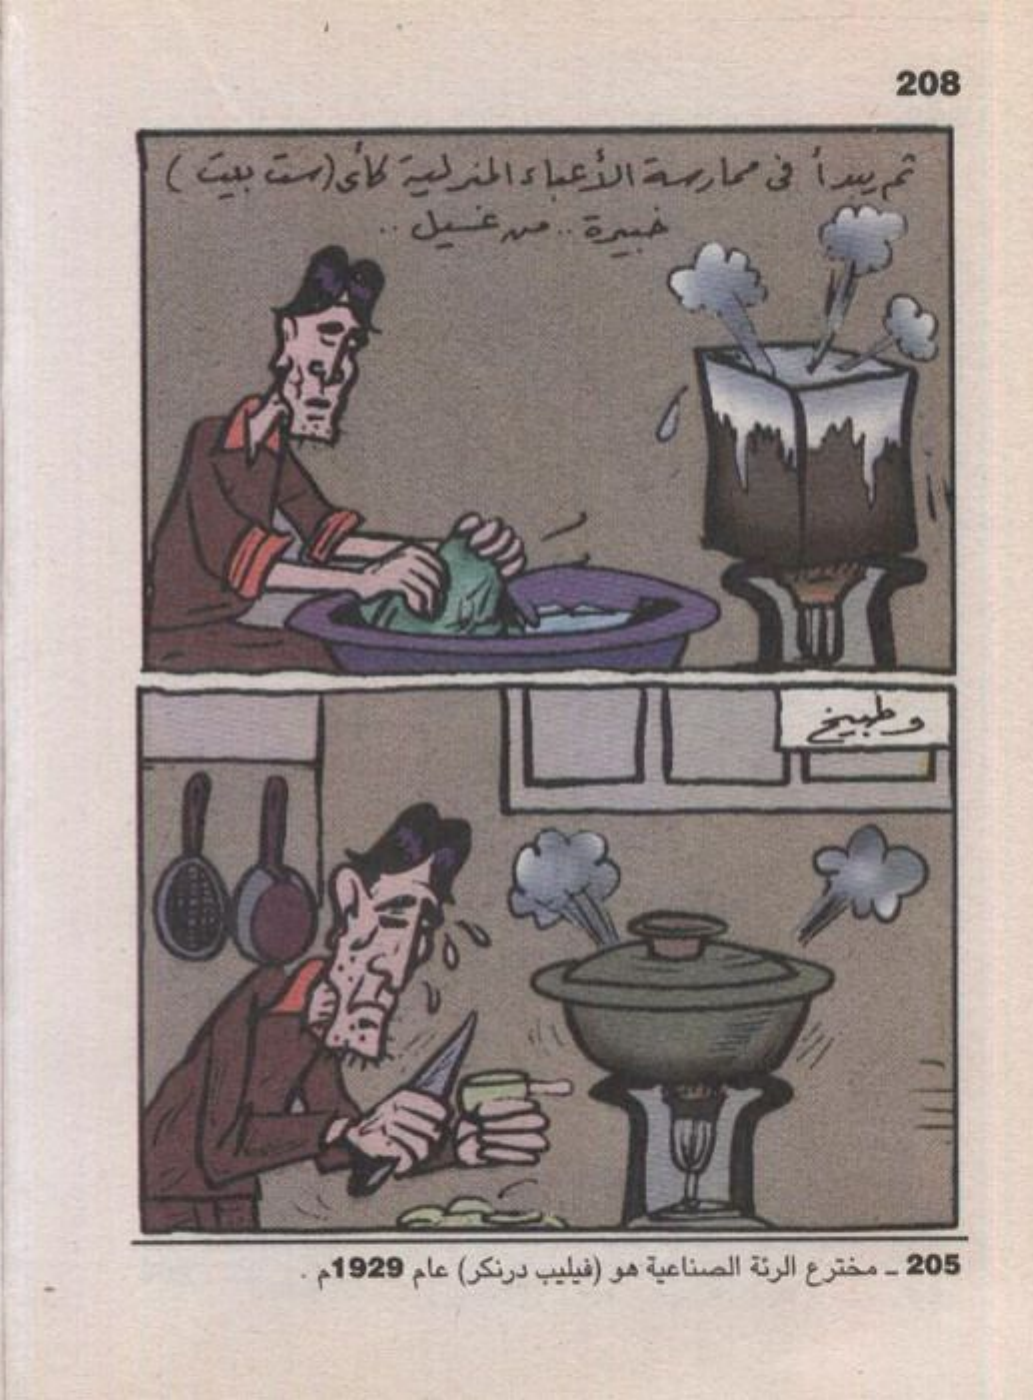 208
ثم يبدأ فى ممارسة الأعباء المنزلية كأى (ست بيت)
خبيرة .. من غسيل ..
و طبيخ
205 ـ مخترع الرئة الصناعية هو (فيليب درنكر) عام 1929م .